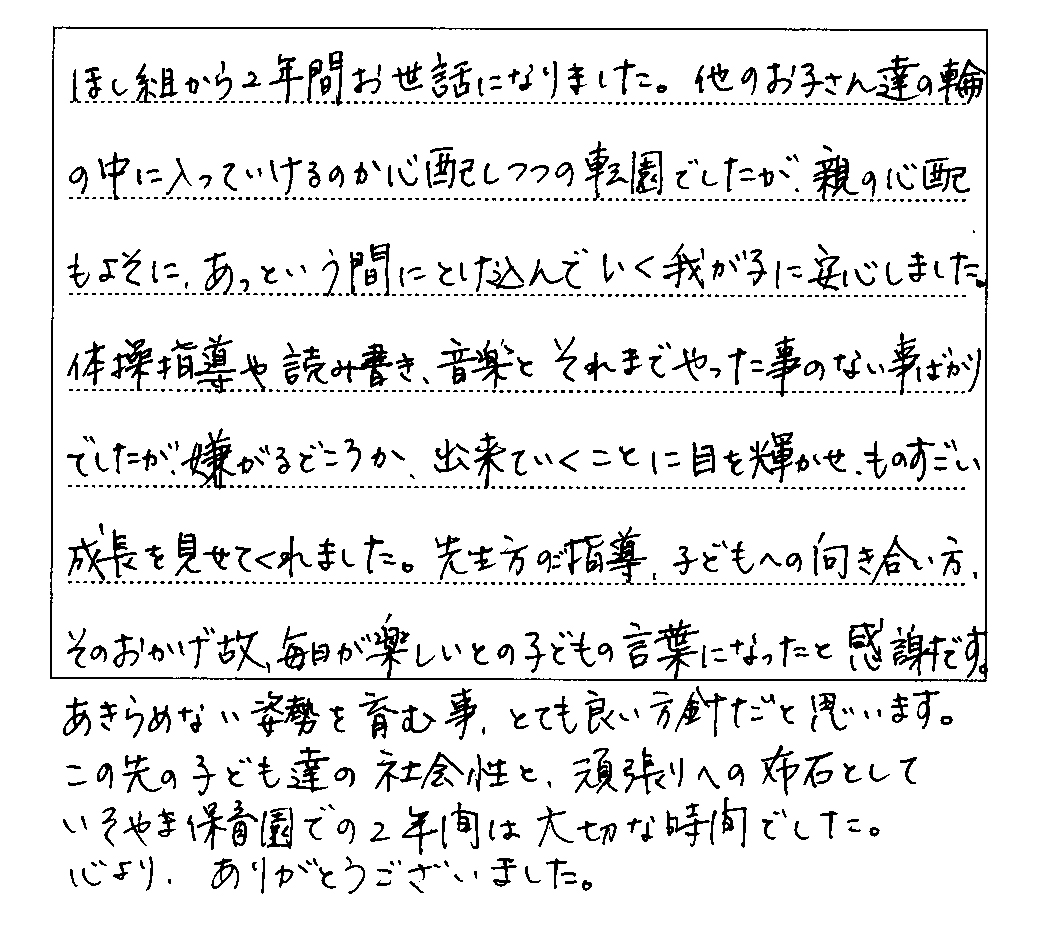 ほし組から2年間お世話になりました。他のお子さん達の輪
の中に入っていけるのか心配しつつの転園でしたが、親の心配
もよそに、あっという間にとけ込んでいく我が子に安心しました。
体操指導や読み書き、音楽とそれまでやった事のない事ばかり
でしたが、嫌がるどころか、出来ていくことに目を輝かせ、ものすごい
成長を見せてくれました。先生方のご指導、子どもへの向き合い方、
そのおかげ故、毎日が楽しいとの子どもの言葉になったと感謝です。
あきらめない姿勢を育む事、とても良い方針だと思います。
この先の子ども達の社会性と、頑張りへの布石として
いそやま保育園での2年間は大切な時間でした。
心より、ありがとうございました。